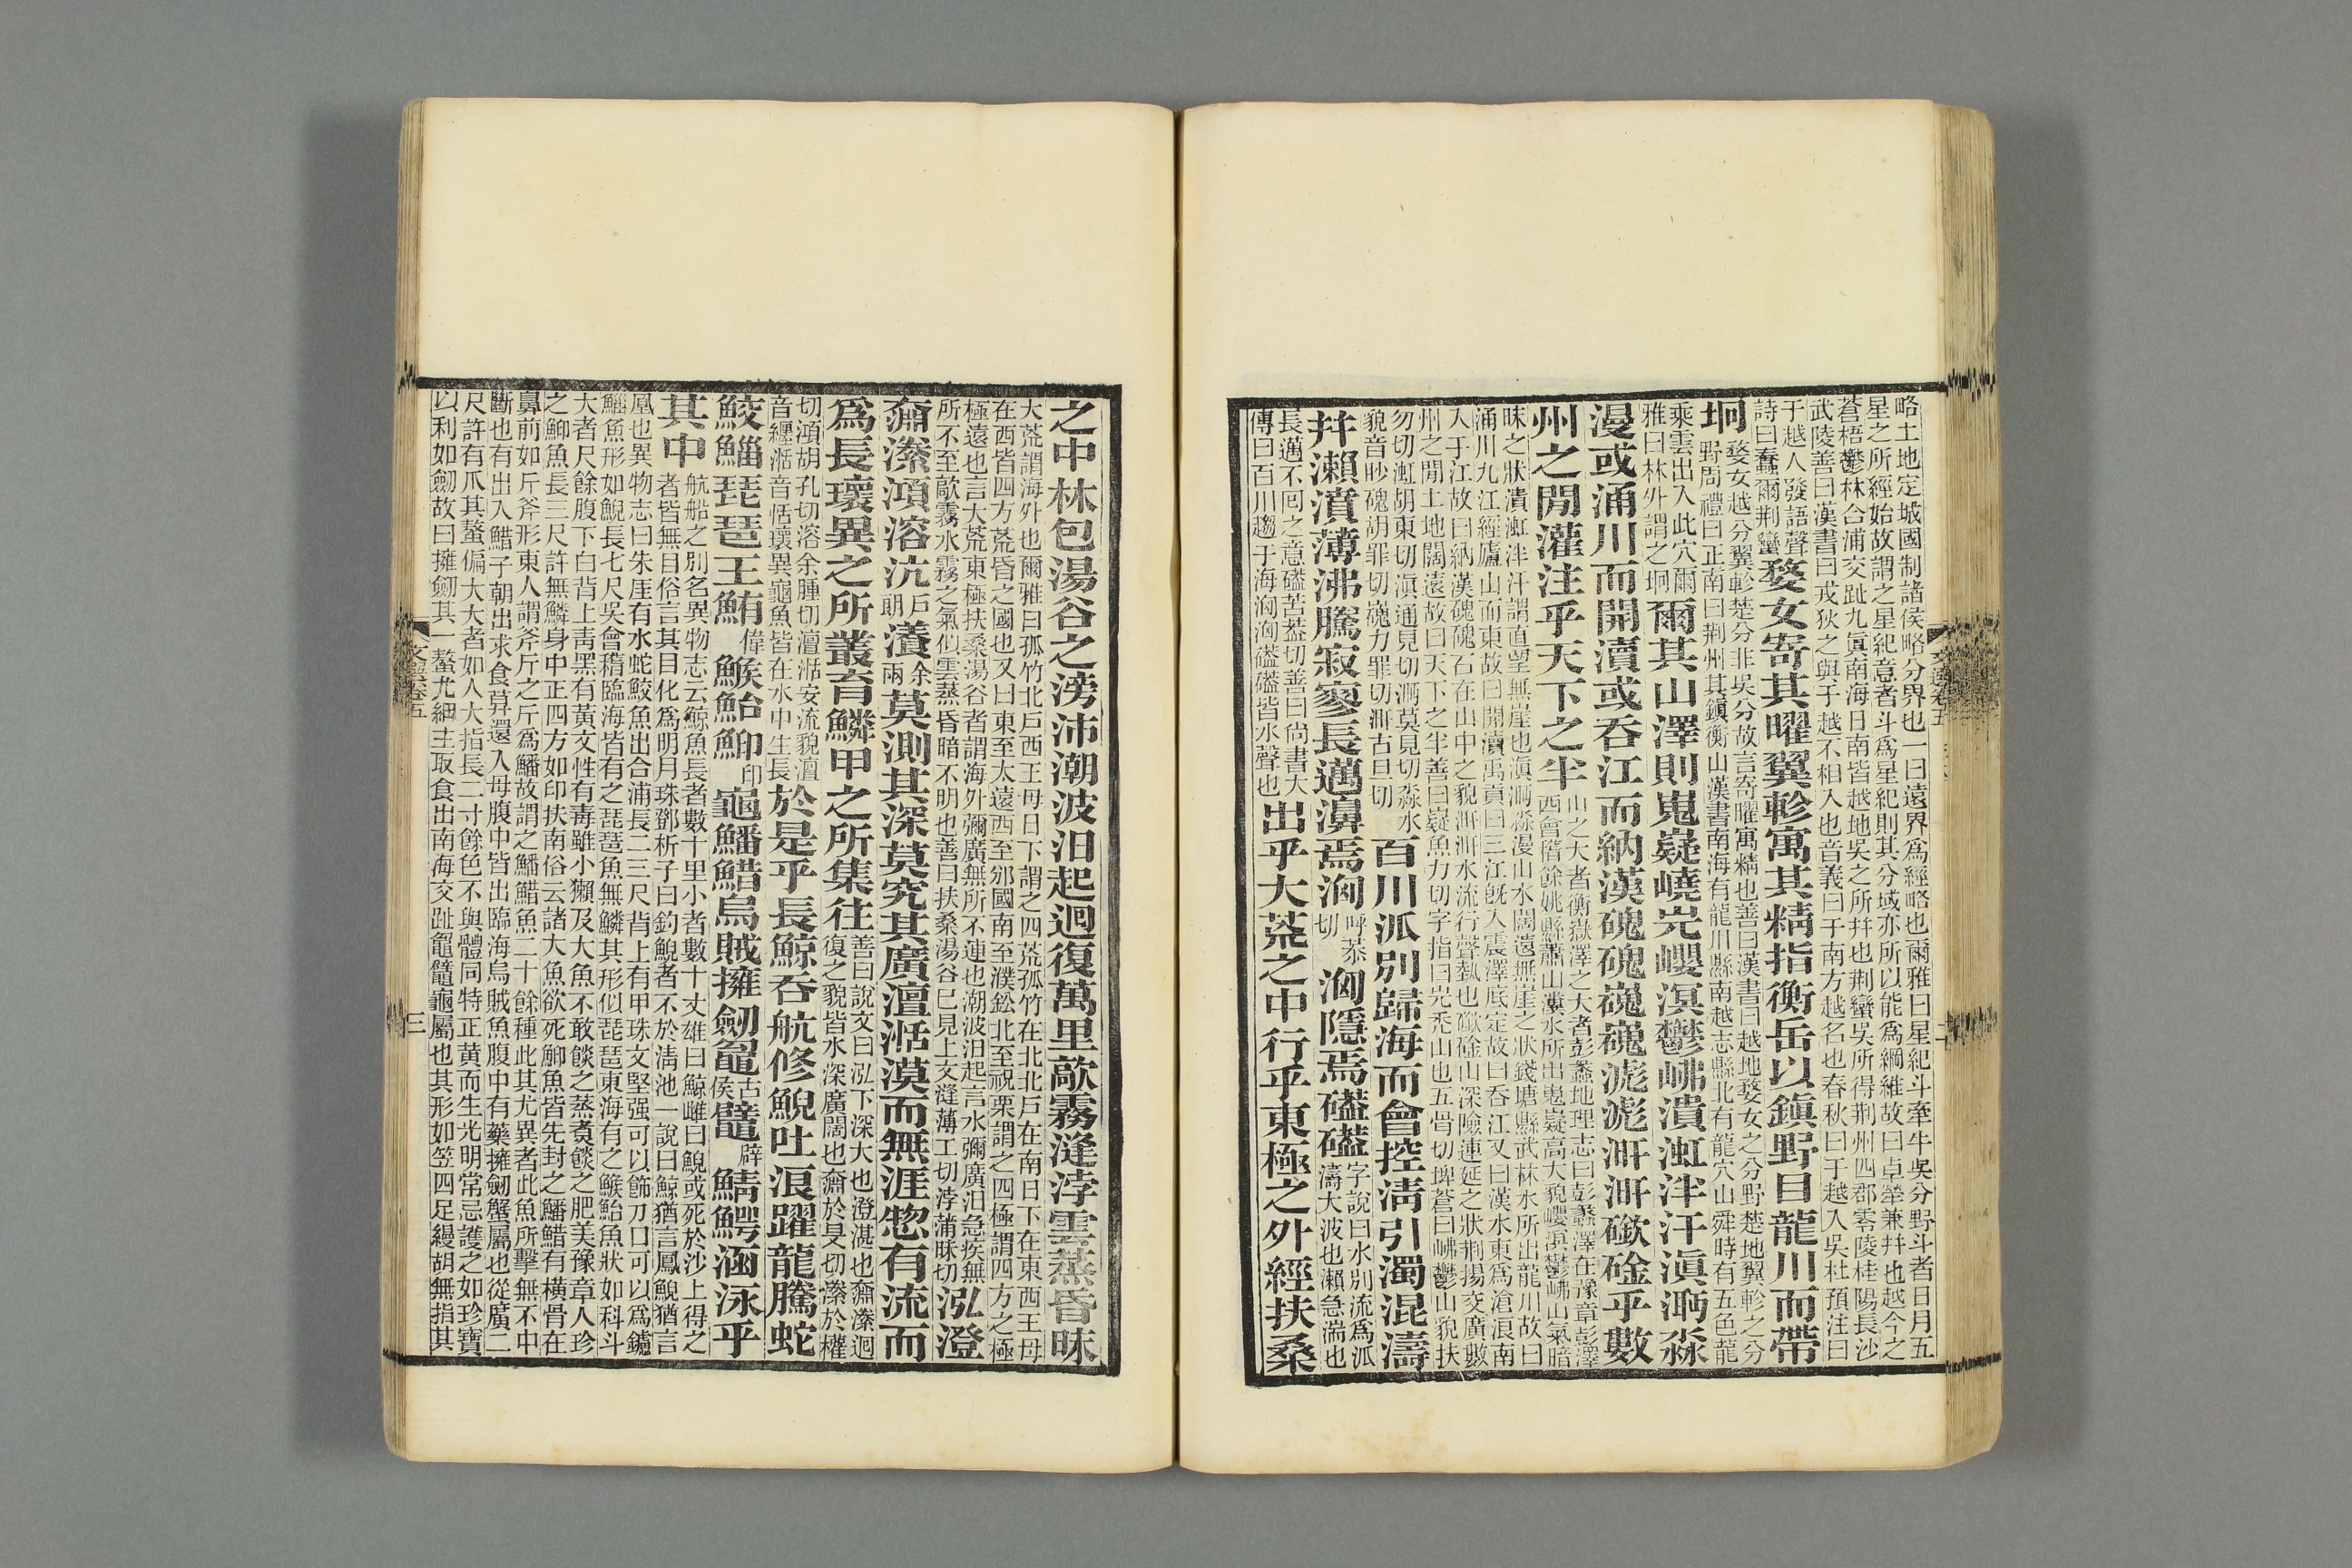 略土地定城國制諸侯略分界也一曰遠界爲經略也爾雅曰星紀斗牽牛吳分野斗者日月五
星之所經始故謂之星紀意者斗爲星紀則其分域亦所以能爲綱維故曰卓犖兼幷也越今之
蒼梧鬱林合浦交趾九眞南海日南皆越地吳之所幷也荆蠻吳所得荆州四郡零陵桂陽長沙
武陵善曰漢書曰戎狄之與于越不相入也音義曰于南方越名也春秋曰于越入吳杜預注曰
于越人發語聲
詩曰蠢爾荆蠻
婺女寄其曜翼軫寓其精指衡岳以鎭野目龍川而帶
坰
婺女越分翼軫楚分非吳分故言寄曜寓精也善曰漢書曰越地婺女之分野楚地翼軫之分
野周禮曰正南曰荆州其鎭衡山漢書南海有龍川縣南越志縣北有龍穴山舜時有五色龍
乘雲出入此穴爾
雅曰林外謂之坰
爾其山澤則嵬嶷嶢屼巊溟鬱岪潰渱泮汗滇㴐淼
漫或涌川而開瀆或吞江而納漢磈磈磥磥滮滮涆涆磤碒乎數
州之閒灌注乎天下之半
山之大者衡嶽澤之大者彭蠡地理志曰彭蠡澤在豫章彭澤
西會稽餘姚縣蕭山潘水所出嵬嶷高大貌巊溟鬱岪山氣暗
昧之狀潰渱泮汗謂直望無崖也滇㴐淼漫山水闊遠無崖之狀錢塘縣武林水所出龍川故曰
涌川九江經廬山而東故曰開瀆禹貢曰三江旣入震澤底定故曰吞江又曰漢水東爲滄浪南
入于江故曰納漢磈磈石在山中之貌涆涆水流行聲勢也磤碒山深險連延之狀荆揚交廣數
州之閒土地闊遠故曰天下之半善曰嶷魚力切字指曰屼禿山也五骨切埤蒼曰岪鬱山貌扶
勿切渱胡東切滇通見切㴐莫見切淼水
貌音眇磈胡罪切磥力罪切涆古旦切
百川派別歸海而會控淸引濁混濤
幷瀨濆薄沸騰寂寥長邁濞焉洶
呼恭
切
洶隱焉礚礚
字說曰水別流爲派
濤大波也瀨急湍也
長邁不回之意礚苦葢切善曰尙書大
傳曰百川趨于海洶洶礚礚皆水聲也
出乎大荒之中行乎東極之外經扶桑
文選卷五
二
之中林包湯谷之滂沛潮波汨起迴復萬里歊霧漨浡雲蒸昏昧
大荒謂海外也爾雅曰孤竹北戶西王母日下謂之四荒孤竹在北北戶在南日下在東西王母
在西皆四方荒昏之國也又曰東至太遠西至邠國南至濮鈆北至祝栗謂之四極謂四方之極
極遠也言大荒東極扶桑湯谷者謂海外彌廣無所不連也潮波汨起言水彌廣汨急疾無
所不至歊霧水霧之氣似雲蒸昏暗不明也善曰扶桑湯谷已見上文漨薄工切浡蒲昧切
泓澄
奫潫澒溶沆
戶
朗
瀁
余
兩
莫測其深莫究其廣澶湉漠而無涯惣有流而
爲長瓌異之所叢育鱗甲之所集往
善曰說文曰泓下深大也澄湛也奫潫迴
復之貌皆水深廣闊也奫於旻切潫於權
切澒胡孔切溶余腫切澶湉安流貌澶
音纏湉音恬瓌異龜魚皆在水中生長
於是乎長鯨吞航修鯢吐浪躍龍騰蛇
鮫鯔琵琶王鮪
偉
鯸鮐鮣
印
龜鱕䱜烏賊擁劒䵶
古
侯
鼊
辟
鯖鰐涵泳乎
其中
航船之別名異物志云鯨魚長者數十里小者數十丈雄曰鯨雌曰鯢或死於沙上得之
者皆無目俗言其目化爲明月珠鄧析子曰釣鯢者不於淸池一說曰鯨猶言鳳鯢猶言
凰也異物志曰朱厓有水蛇鮫魚出合浦長二三尺背上有甲珠文堅强可以飾刀口可以爲鑢
鯔魚形如鯢長七尺吳會稽臨海皆有之琵琶魚無鱗其形似琵琶東海有之鯸鮐魚狀如科斗
大者尺餘腹下白背上靑黑有黃文性有毒雖小獺及大魚不敢餤之蒸煑餤之肥美豫章人珍
之鮣魚長三尺許無鱗身中正四方如印扶南俗云諸大魚欲死鮣魚皆先封之鱕䱜有橫骨在
鼻前如斤斧形東人謂斧斤之斤爲鱕故謂之鱕䱜魚二十餘種此其尤異者此魚所擊無不中
斷也有出入䱜子朝出求食暮還入母腹中皆出臨海烏賊魚腹中有藥擁劒蟹屬也從廣二
尺許有爪其螯偏大大者如人大指長二寸餘色不與體同特正黃而生光明常忌護之如珍寶
以利如劒故曰擁劒其一螯尤細主取食出南海交趾䵶鼊龜屬也其形如笠四足縵胡無指其
文選卷五
三